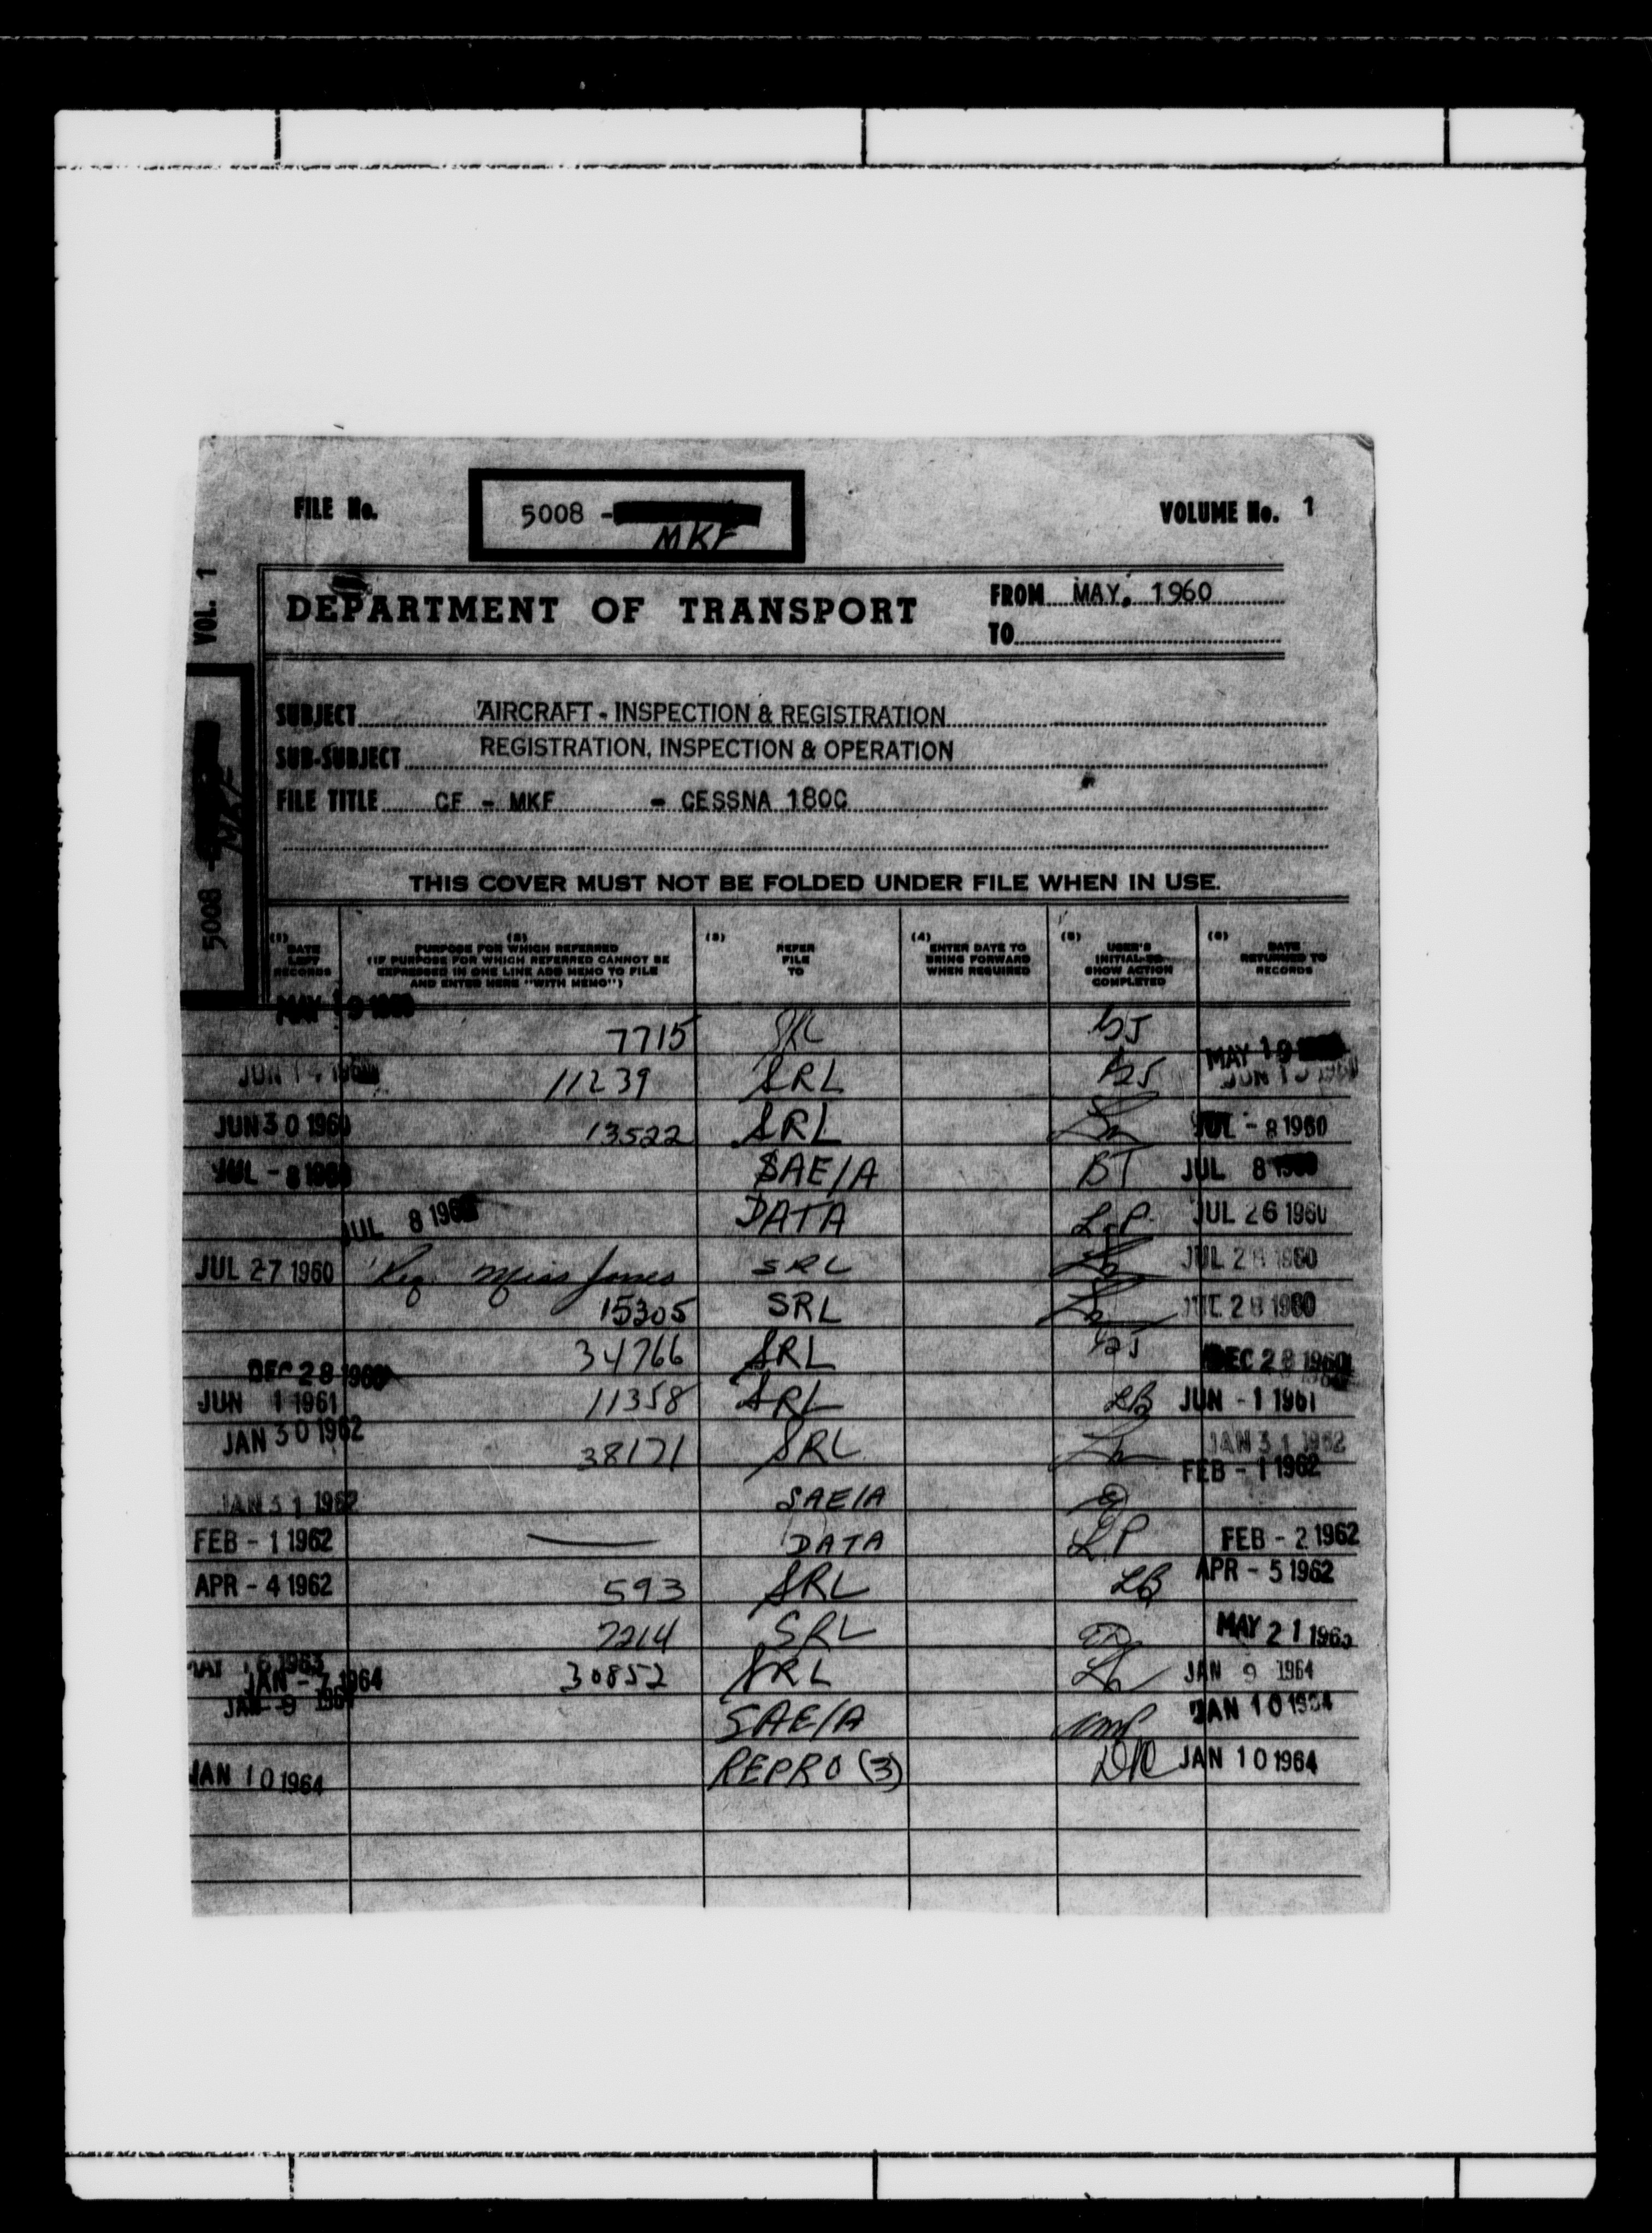 FILE No. 5008 - MKF VOLUME No. 1
VOL. 1
DEPARTMENT OF TRANSPORT
FROM MAY, 1960
TO
SUBJECT AIRCRAFT - INSPECTION & REGISTRATION
SUB-SUBJECT REGISTRATION, INSPECTION & OPERATION
FILE TITLE CF - MKF - CESSNA 180C
5008 - MKF
THIS COVER MUST NOT BE FOLDED UNDER FILE WHEN IN USE.
(1) DATE LEFT RECORDS
(2) PURPOSE FOR WHICH REFERRED
(IF PURPOSE FOR WHICH REFERRED CANNOT BE
EXPRESSED IN ONE LINE ADD MEMO TO FILE
AND ENTER HERE "WITH MEMO")
(3) REFER FILE TO
(4) ENTER DATE TO BRING FORWARD WHEN REQUIRED
(5) USER'S INITIAL TO SHOW ACTION COMPLETED
(6) DATE RETURNED TO RECORDS
MAY 19 7715 MAY 19
JUN 11239 SRL
JUN 30 1960 13522 SRL JUL - 8 1960
JUL - 8 SAE/A BT JUL 8
JUL 8 DATA L.P. JUL 26 1960
JUL 27 1960 Req Miss Jones SRL JUL 28 1960
15305 SRL 28 1960
DEC 28 1960 34766 SRL DEC 28 1960
JUN 1 1961 11358 SRL LB JUN - 1 1961
JAN 30 1962 38171 SRL JAN 31 1962
JAN 31 1962 SAE/A FEB - 1 1962
FEB - 1 1962 DATA L.P FEB - 2 1962
APR - 4 1962 593 SRL LB APR - 5 1962
7214 SRL MAY 21 1963
MAY 16 1963
JAN - 7 1964 30852 SRL JAN 9 1964
JAN - 9 1964 SAE/A JAN 10 1964
JAN 10 1964 REPRO (3) JAN 10 1964